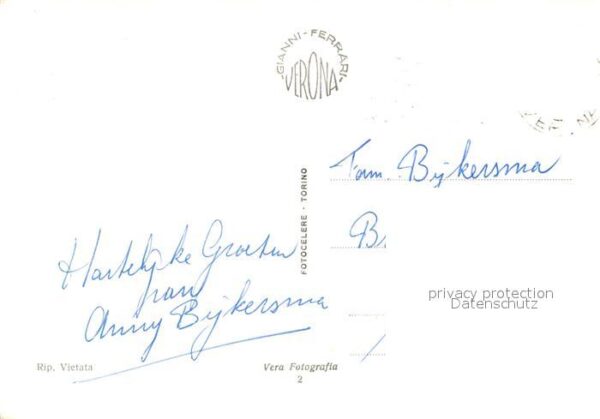 GIANNI - FERRARI
VERONA
Fam. Bijkersma
B.
FOTOCELERE - TORINO
Hartelijke Groeten
van
Anny Bijkersma
privacy protection
Datenschutz
Rip. Vietata
Vera Fotografia
2